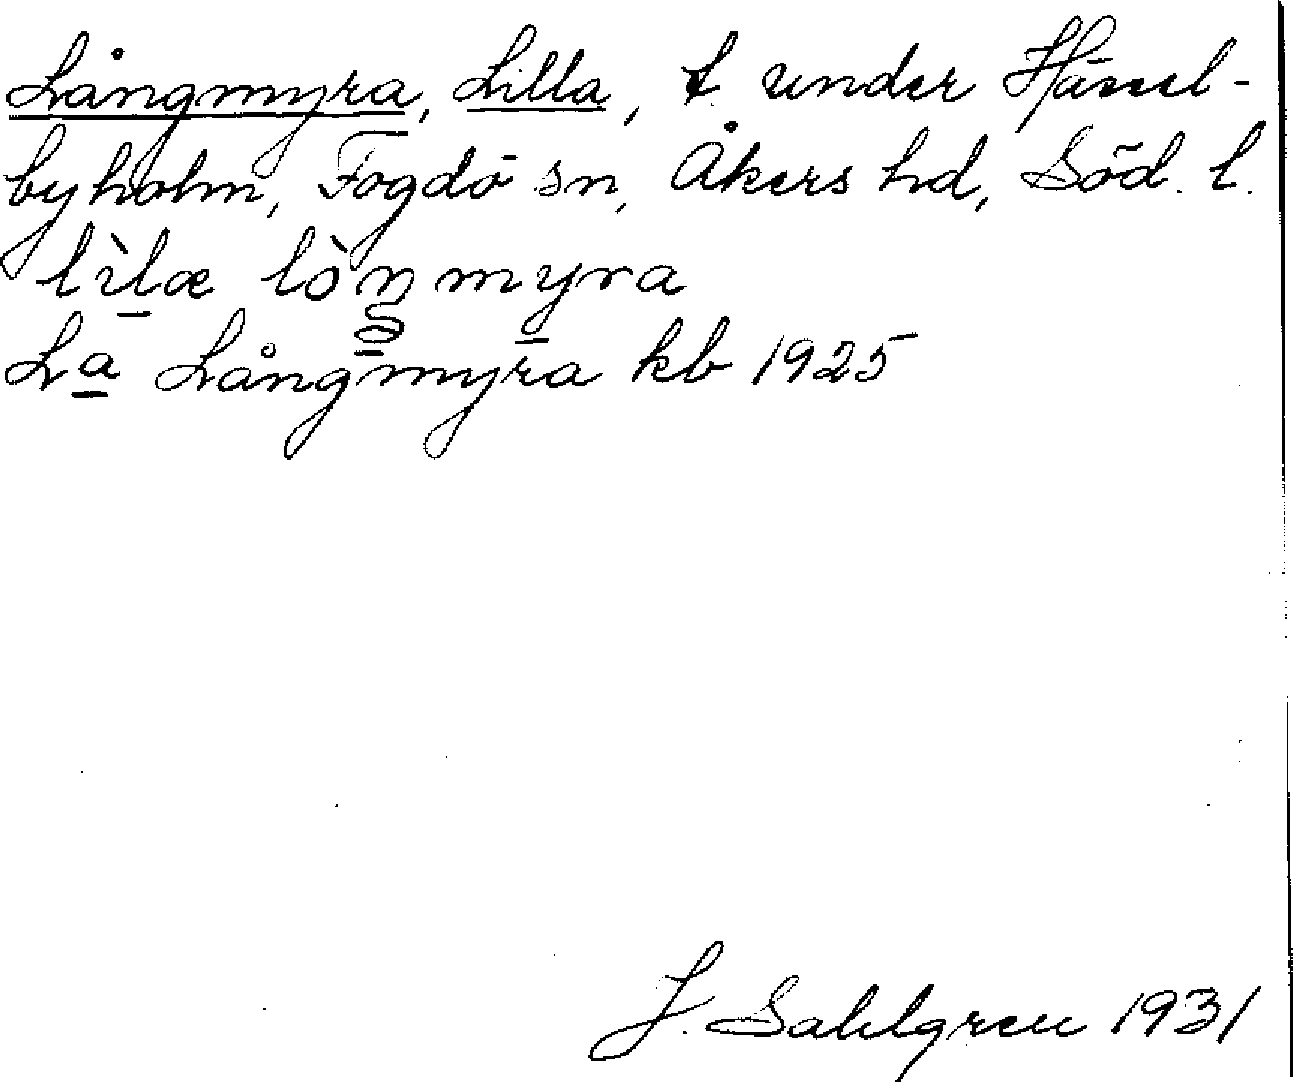 Långmyra, Lilla, t. under Hässel-
byholm, Fogdö sn, Åkers hd, Söd. l.
lìlæ lòŋmyra
La Långmyra kb 1925
J. Sahlgren 1931